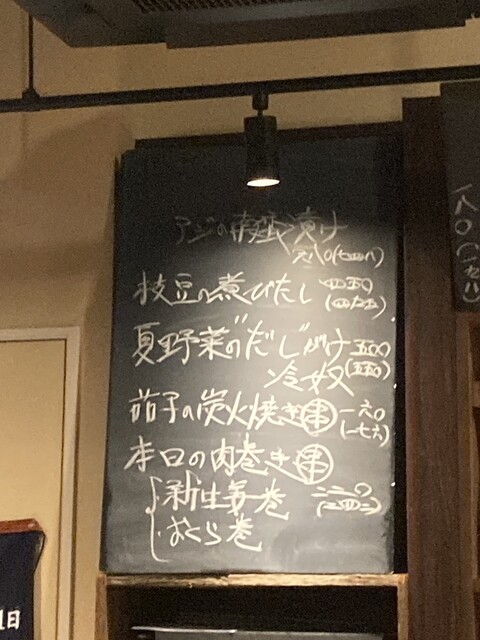 アジの南蛮漬け
六八〇(七四八)
枝豆の煮びたし 四五〇
(四九五)
夏野菜の"だし"がけ 五〇〇
冷奴(五五〇)
茄子の炭火焼き串 一六〇
(一七六)
本日の肉巻き串
・新生姜巻 二二〇
(二四二)
・おくら巻
一八〇(一九八)
1日